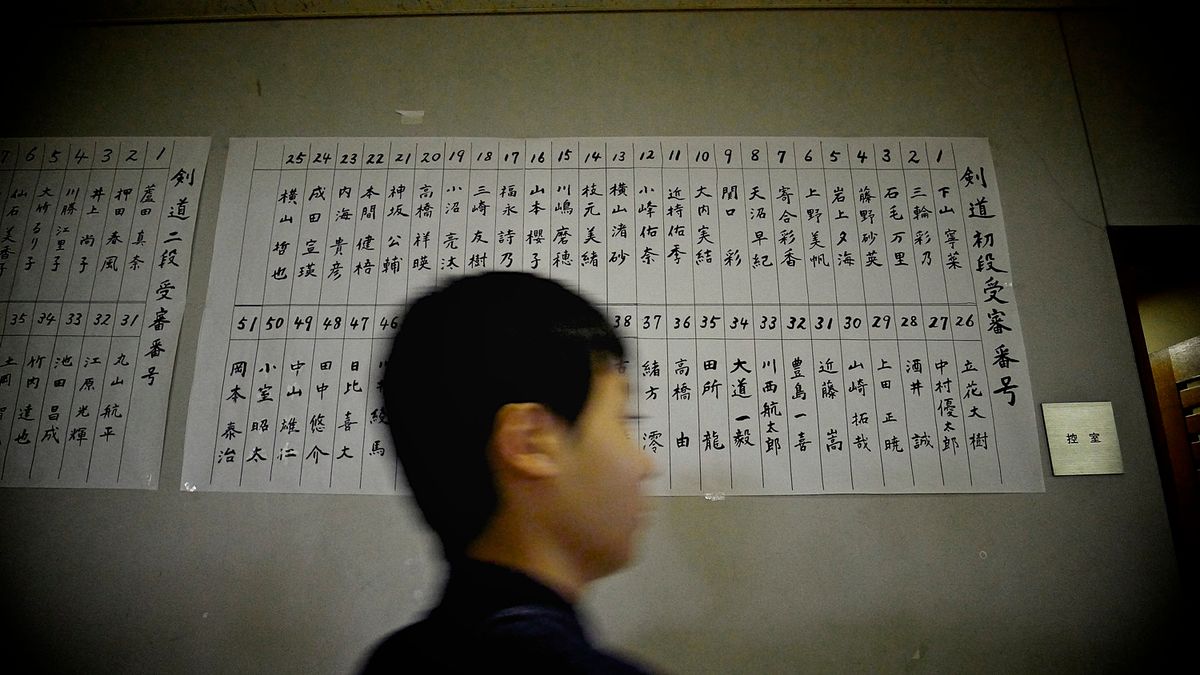 剣道初段受審番号
1 下山寧菜
2 三輪彩乃
3 石毛万里
4 藤野砂英
5 岩上夕海
6 上野美帆
7 寄合彩香
8 天沼早紀
9 関口彩
10 大内実結
11 近特佑季
12 小峰佑奈
13 横山渚砂
14 枝元美緒
15 川嶋磨穂
16 山本櫻子
17 福永詩乃
18 三崎友樹
19 小沼亮汰
20 高橋祥暎
21 神坂公輔
22 本間健梧
23 内海貴彦
24 成田宣瑛
25 横山哲也
26 立花大樹
27 中村優太郎
28 酒井誠
29 上田正暁
30 山崎拓哉
31 近藤嵩
32 豊島一喜
33 川西航太郎
34 大道一毅
35 田所龍
36 高橋由
37 緒方澪
38
46
47 日比喜大
48 田中悠介
49 中山雄仁
50 小室昭太
51 岡本泰治
剣道二段受審番号
1 蘆田真奈
2 押田春風
3 井上尚子
4 川勝江里子
5 大竹るり子
6 仙石美香子
7
31 丸山航平
32 江原光輝
33 池田昌成
34 竹内達也
35
控室